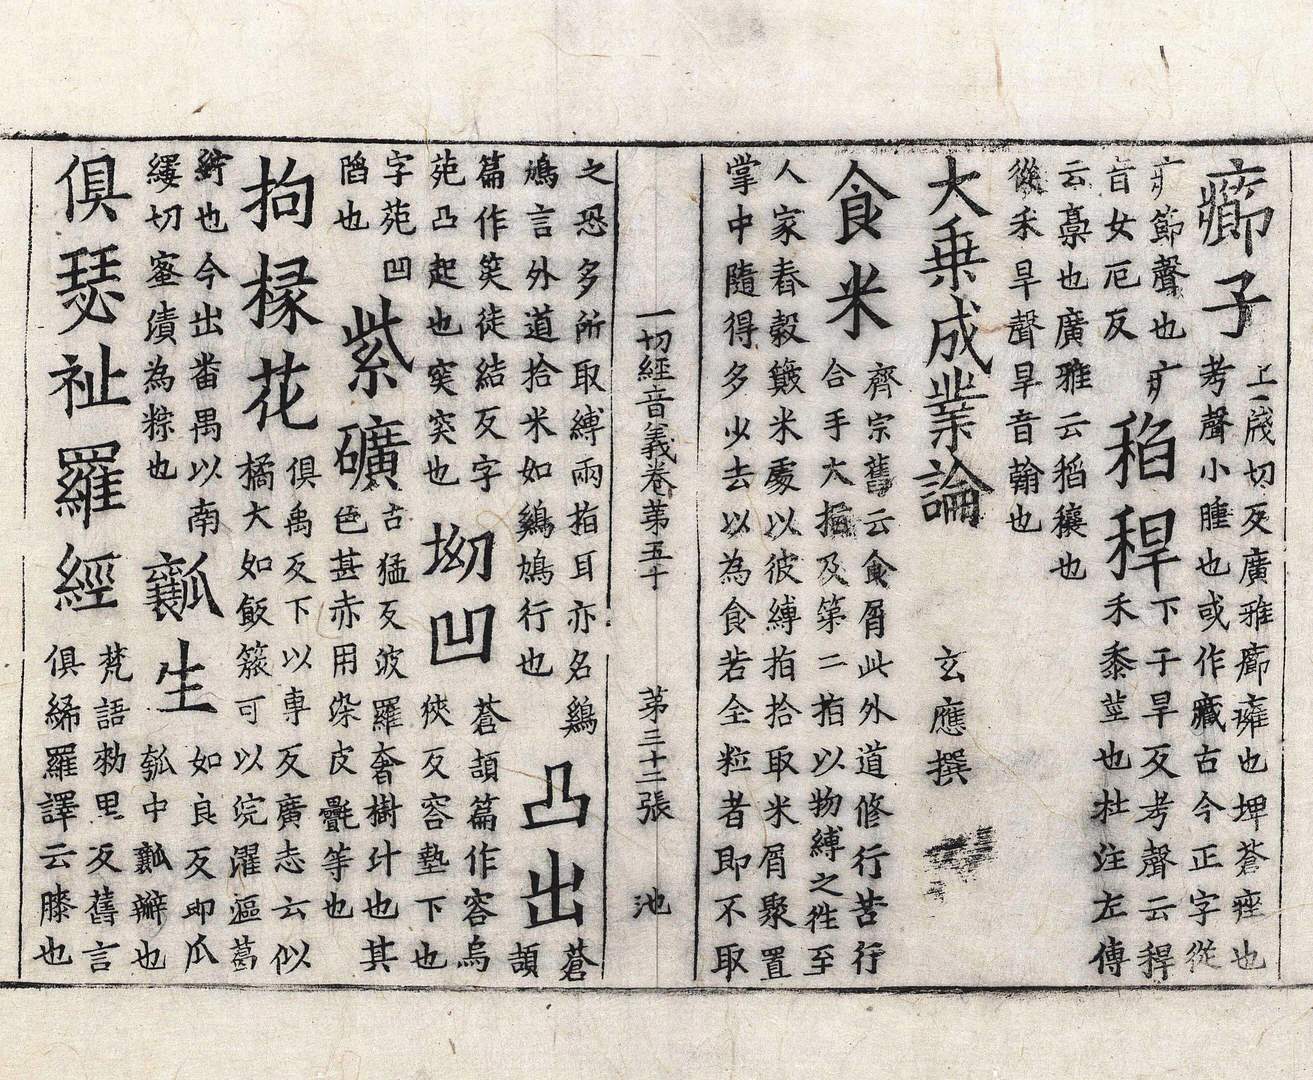 癤子
上㦍切反廣雅癤癰也埤蒼痤也
考聲小腫也或作古今正字從
疒節聲也疒
音女厄反
稻稈
下干旱反考聲云稈
禾黍莖也杜注左傳
云藁也廣雅云稻穰也
從禾旱聲旱音翰也
大乗成業論 玄應撰
食米
齊宗舊云食屑此外道修行苦行
合手大指及第二指以物縛之徃至
人家舂穀簸米處以彼縛指拾取米屑聚置
掌中隨得多少去以為食若全粒者即不取
一切經音義卷苐五十 苐三十二張 池
之恐多所取縛兩指耳亦名鷄
鳩言外道拾米如鷄鳩行也
凸出
蒼
頡
篇作突徒結反字
苑凸起也突突也
坳凹
蒼頡篇作容烏
狹反容墊下也
字苑凹
陷也
紫礦
古猛反波羅奢樹汁也其
色甚赤用染皮㲲等也
拘櫞花
俱禹反下以専反廣志云似
橘大如飯簁可以浣濯漚葛
紵也今出番禺以南
縷切蜜漬為粽也
瓤生
如良反即瓜
瓠中瓤瓣也
俱瑟祉羅經
梵語勑里反舊言
俱絺羅譯云膝也